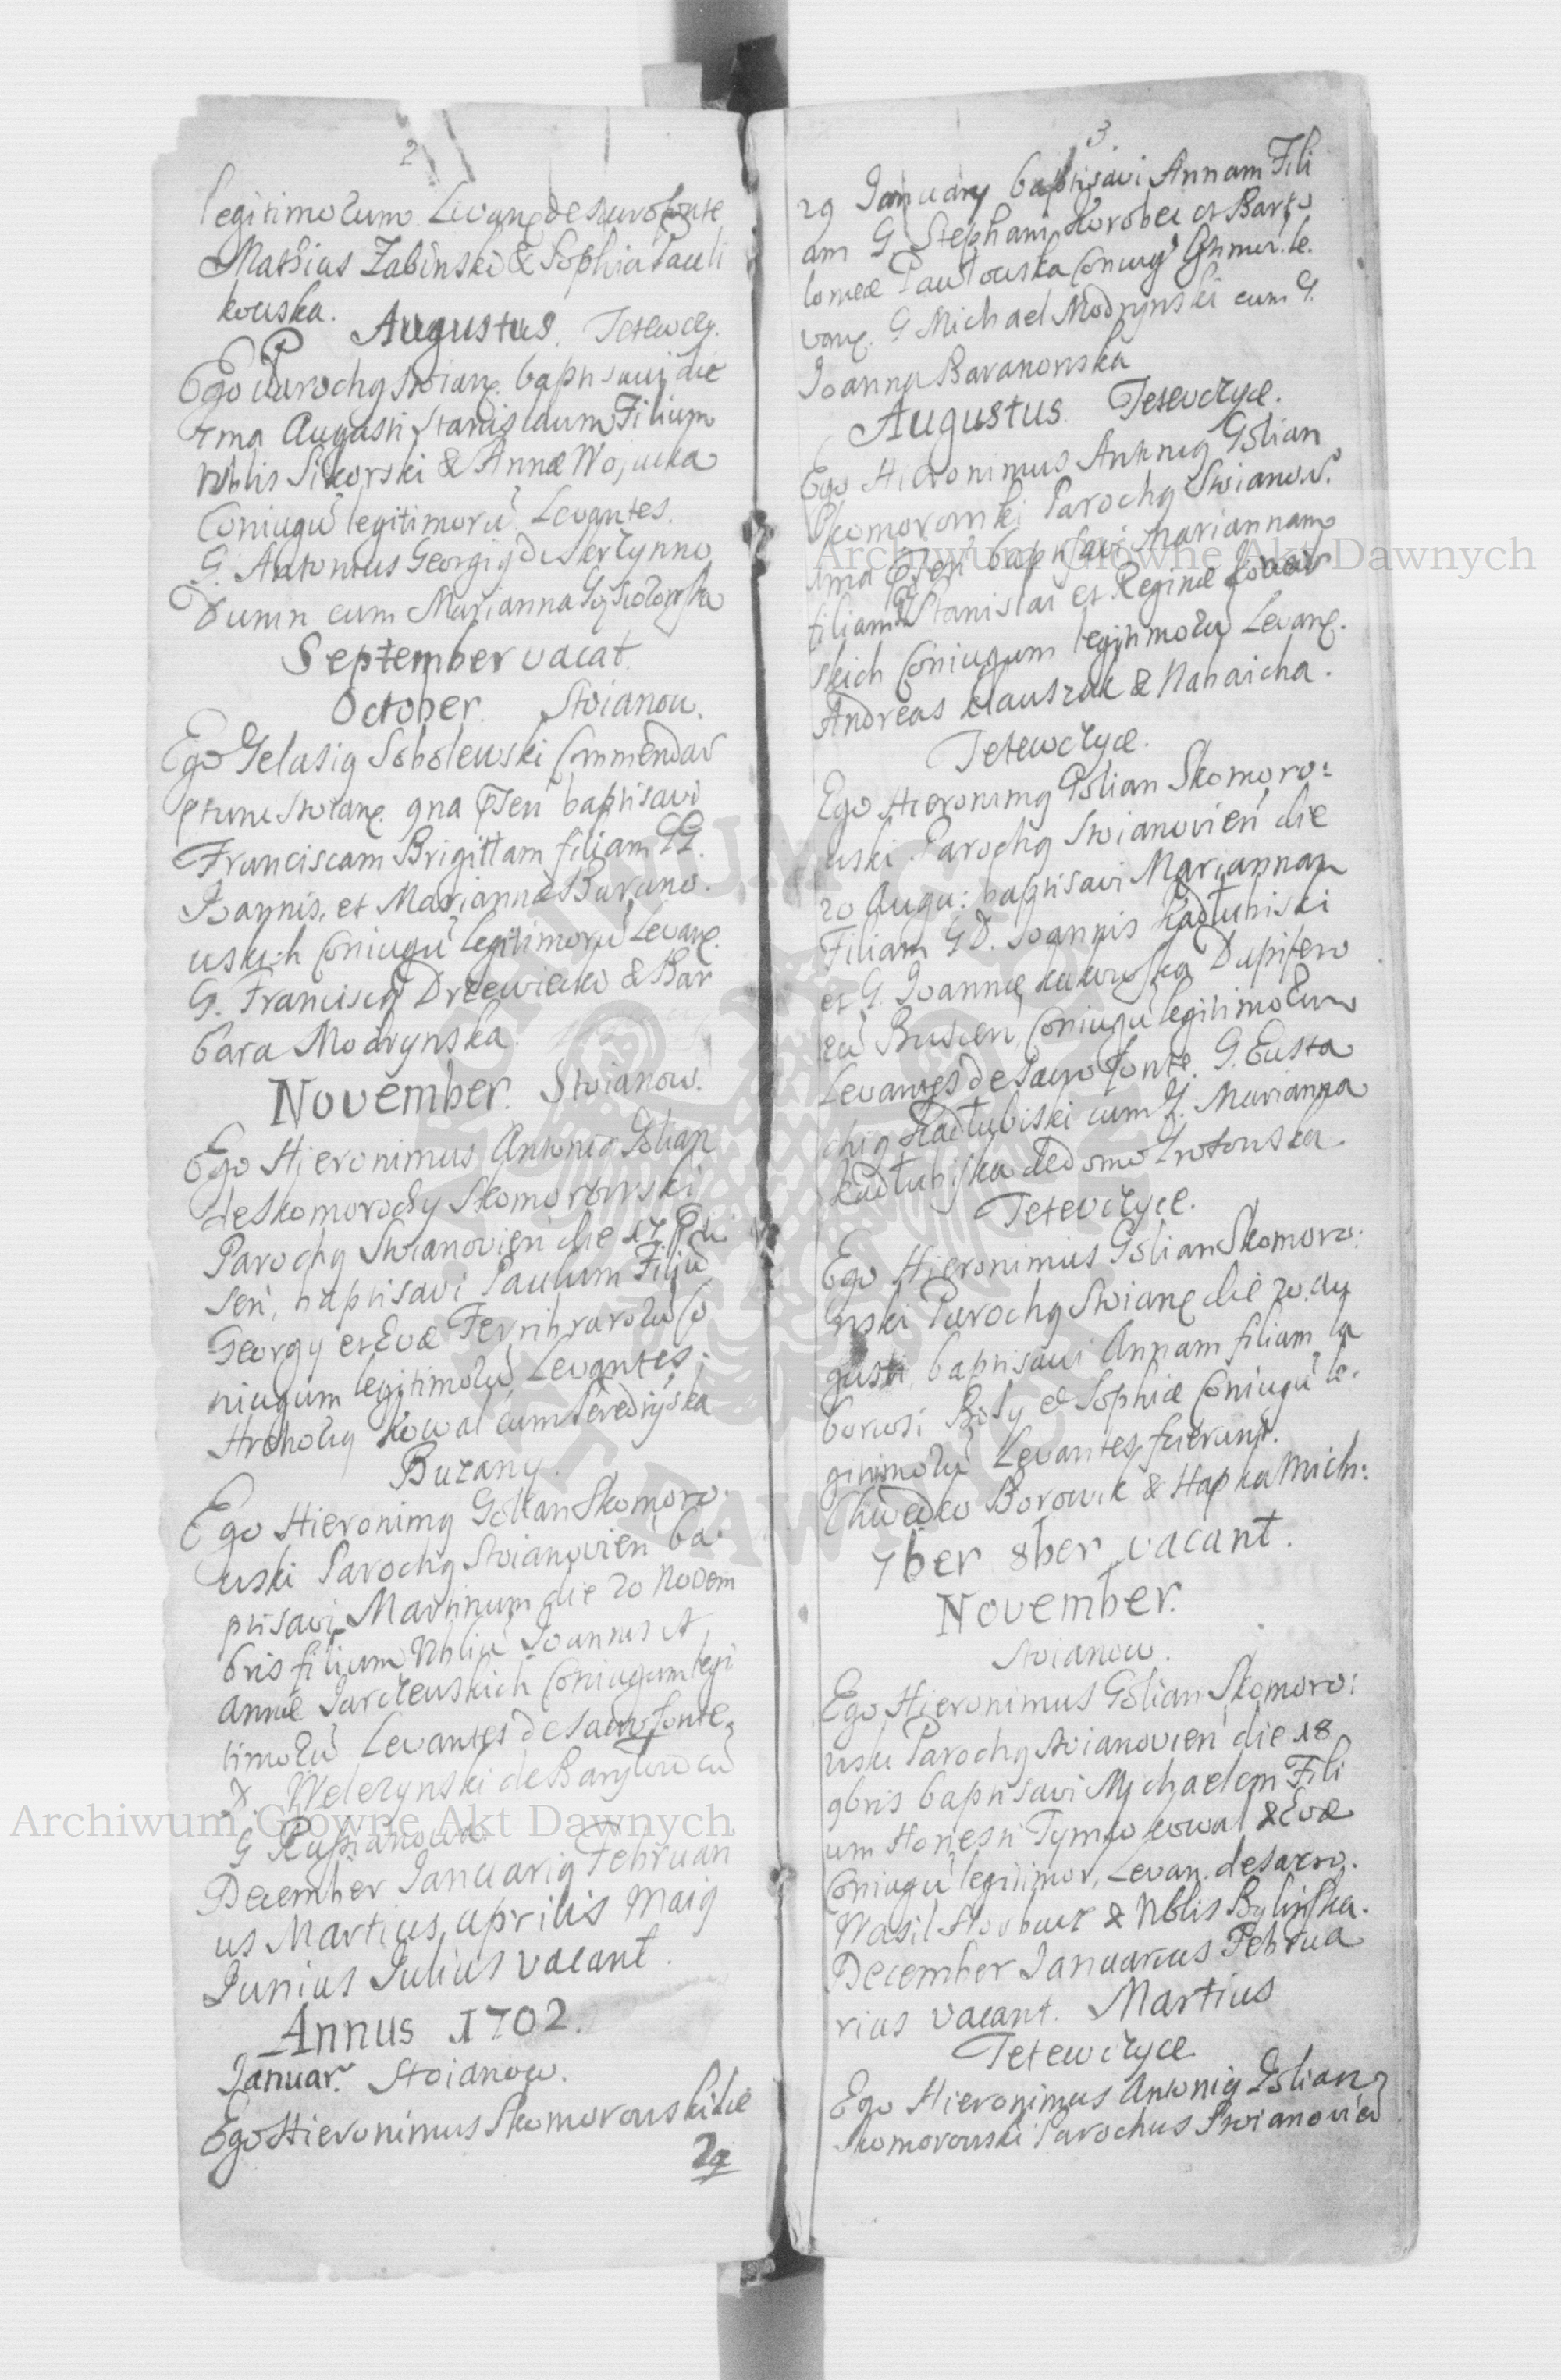 2
legitimorum Levan de sacro fonte
Mathias Zabinski & Sophia Pauli
kouska.
Augustus. Tetewczy.
Ego Parochq Stoian. baptisavi die
7ma Augusti Stanislaum Filium
Nblis Sikorski & Annæ Wojucka
Coniugu legitimoru Levantes.
G. Antonius Georgij de
Dunin cum Marianna
September vacat.
October. Stoianow.
Ego Gelasiq Sobolewski Commendar
ptunc Stoian. 9na Psen baptisavi
Franciscam Brigittam filiam GG.
Joannis, et Mariannæ Barano.
uskich Coniugu legitimoru Levan.
G. Franciscq Drzewiecki & Bar
bara Modrynska.
November. Stoianow.
Ego Hieronimus Antoniq Golian
de Skomorochy Skomorowski
Parochq Stoianovien die 17 Psi
sen, baptisavi Paulum Filiu
Georgy et Evæ Co
niugum legitimoru Levantes;
Kowal cum
Buzany.
Ego Hieronimq Golian Skomoro.
uski Parochq Stoianovien ba.
ptisavi Martinum die 20 Novem
bris filium Nbliu Joannis et
Annæ Jarczeuskich Coniugum legi
timoru Levantes de sacro fonte,
X. Welezynski de cu
G
December Januariq Februari
us Martius aprilis Maiq
Junius Julius vacant.
Annus 1702.
Januar. Stoianow.
Ego Hieronimus Skomorouski die
29
3
29 January baptisavi Annam Fili
am G. Stephani Korobei et Barto
lomeæ Pautouska Coniug legitimor. le.
van. G Michael Modrynski cum G.
Joanna Baranowska
Augustus. Tetewczyce.
Ego Hieronimus Antoniq Golian
Skomorowski Parochq Stoianov.
baptisavi Mariannam
filiam Stanislai et Reginæ
skich Coniugum legitimoru Levan.
Andreas Klauszak & Nahaicha.
Tetewczyce.
Ego Hieronimq Golian Skomoro:
uski Parochq Stoianovien die
20 Augu: baptisavi Mariannam
Filiam GD. Joannis Kadłubiski
et G. Joannæ Dapifero
ru Busien, Coniugu legitimorum
Levantes de sacro fonte. G. Eusta
chiq Kadłubiski cum G. Marianna
Kadłubiska de domo
Tetewczyce.
Ego Hieronimus Golian Skomoro:
wski Parochq Stoian die 20. Au
gusti, baptisavi Annam filiam la
boriosi & Sophiæ Coniugu le.
gitimoru Levantes fuerunt.
Chwedko Borowik & Hapka Mich:
7ber 8ber vacant.
November.
Stoianow.
Ego Hieronimus Golian Skomoro:
wski Parochq Stoianovien die 18
9bris baptisavi Michaelem Fili
um Honesti Tymko Kowal & Evæ
Coniugu legitimor, Levan. de sacro.
Wasil & Nblis Bylinska.
December Januarius Februa
rius vacant. Martius
Tetewczyce.
Ego Hieronimus Antoniq Golian
Skomorouski Parochus Stoianovien
Archiwum Główne Akt Dawnych
Archiwum Główne Akt Dawnych